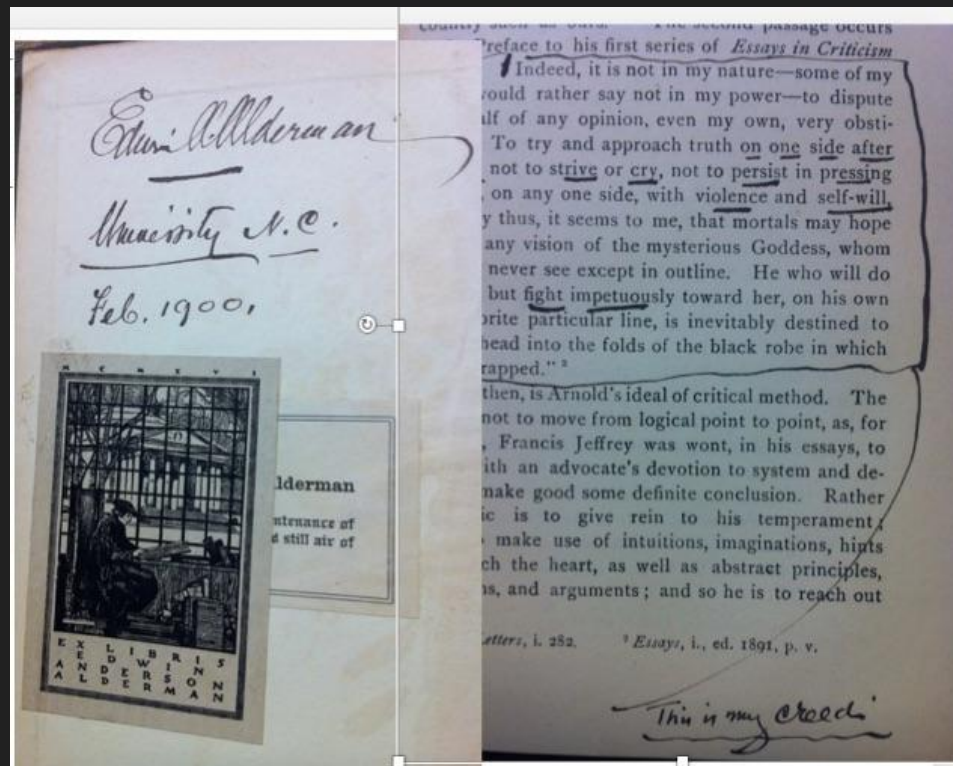 Edwin A. Alderman
University N.C.
Feb. 1900.
MCMXVI
EX LIBRIS
EDWIN
ANDERSON
ALDERMAN
lderman
ntenance of
d still air of
country such as ours. The second passage occurs
Preface to his first series of Essays in Criticism
Indeed, it is not in my nature—some of my
ould rather say not in my power—to dispute
lf of any opinion, even my own, very obsti-
To try and approach truth on one side after
not to strive or cry, not to persist in pressing
, on any one side, with violence and self-will,
y thus, it seems to me, that mortals may hope
any vision of the mysterious Goddess, whom
never see except in outline. He who will do
but fight impetuously toward her, on his own
orite particular line, is inevitably destined to
head into the folds of the black robe in which
rapped." ²
then, is Arnold's ideal of critical method. The
not to move from logical point to point, as, for
, Francis Jeffrey was wont, in his essays, to
ith an advocate's devotion to system and de-
make good some definite conclusion. Rather
ic is to give rein to his temperament;
make use of intuitions, imaginations, hints
ch the heart, as well as abstract principles,
ns, and arguments; and so he is to reach out
etters, i. 282. ² Essays, i., ed. 1891, p. v.
This is my creed